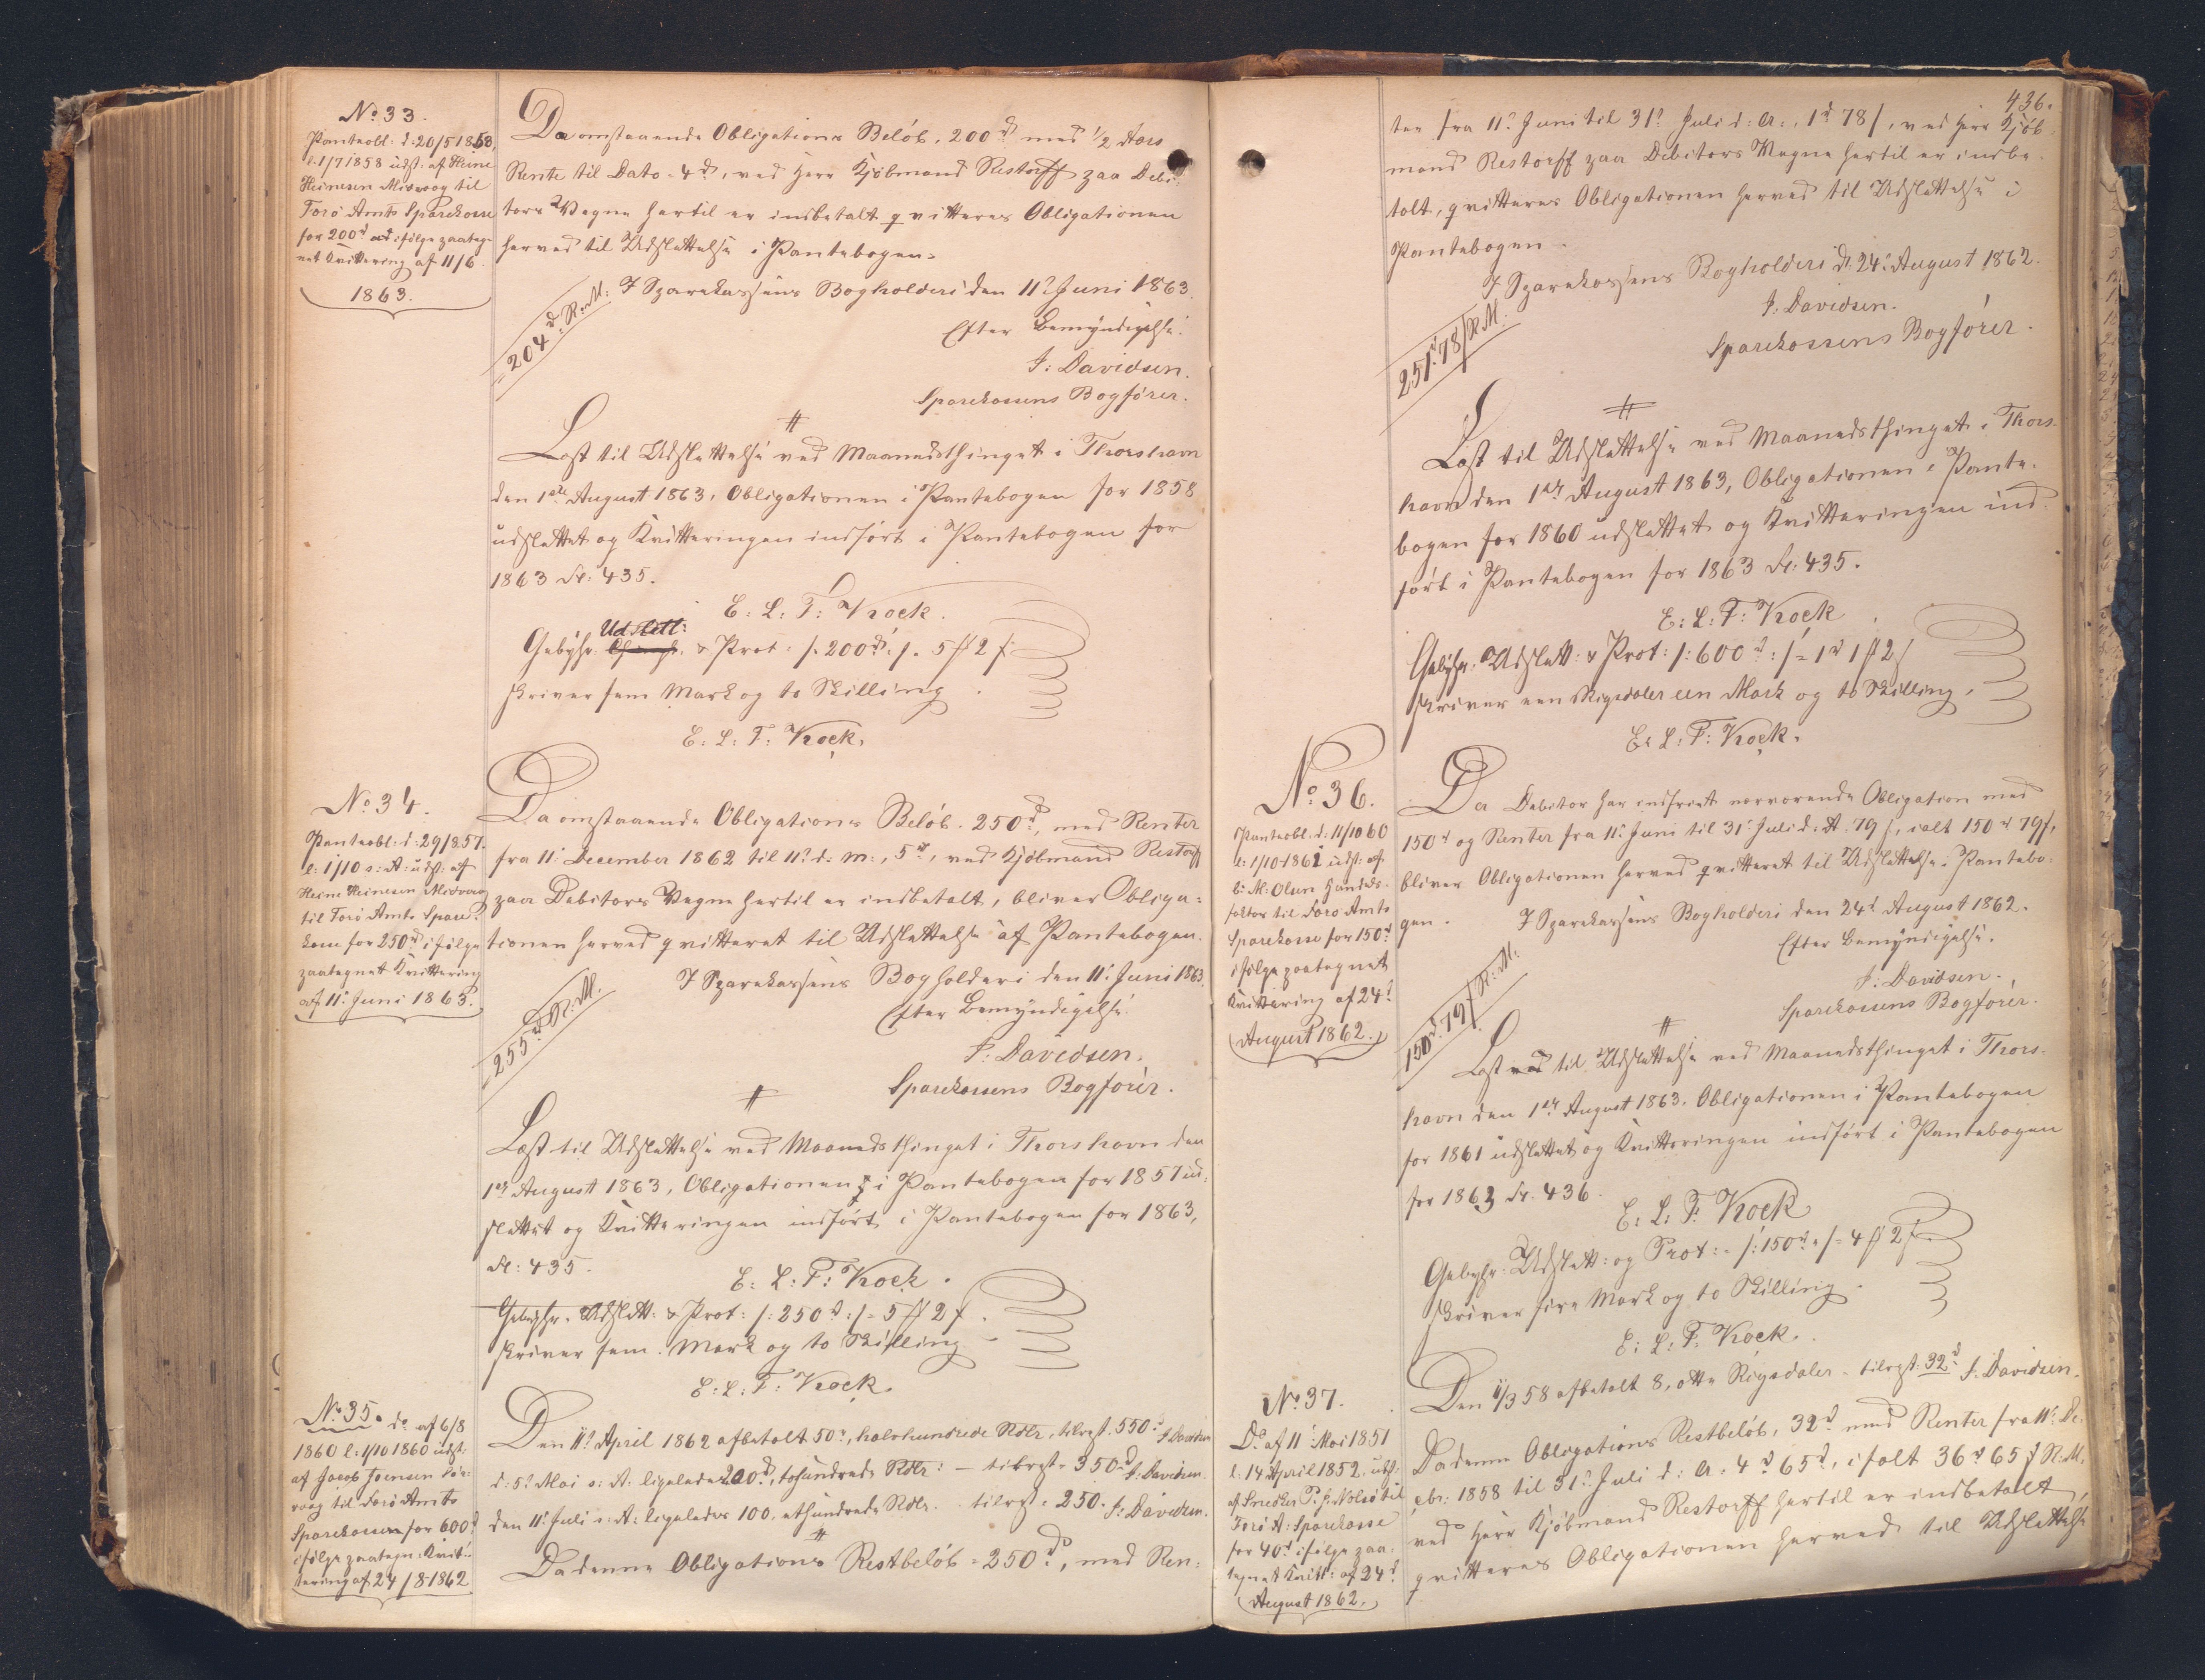 No 33.
Panteobl: d: 20/5 1858,
l: 1/7 1858 udst: af Heine
Heinesen Midvaag til
Forø Amts Sparekasse
for 200d ifølge paateg-
net Kvittering af 11/6
1863.
Da omstaaende Obligations Beløb, 200d med 1/2 Aars
Rente til Dato - 4d, ved Herr Kjøbmand Restorff paa Debi-
tors Vegne hertil er indbetalt qvitteres Obligationen
herved til Udslettelse i Pantebogen.
I Sparekassens Bogholderi den 11te Juni 1863.
204d R:M:
Efter Bemyndigelse.
J: Davidsen.
Sparekassens Bogfører.
Læst til Udslettelse ved Maanedsthinget i Thorshavn
den 1ste August 1863, Obligationen i Pantebogen for 1858
udslettet og Kvitteringen indført i Pantebogen for
1863 Fol: 435.
E: L: F: Kock.
Gebyhr. Udslett: & Prot: /: 200d :/ = 5 # 2 ß
skriver fem Mark og to Skilling.
E: L: F: Kock.
No 34.
Panteobl: d: 29/8 57.
l: 1/10 s: A: udst: af
Heine Heinesen Midvaag
til Forø Amts Spare-
kasse for 250d ifølge
paategnet Kvittering
af 11te Juni 1863.
Da omstaaende Obligations Beløb. 250d, med Renter
fra 11te December 1862 til 11te d: M:, 5d, ved Kjøbmand Restorff
paa Debitors Vegne hertil er indbetalt, bliver Obliga-
tionen herved qvitteret til Udslettelse af Pantebogen.
I Sparekassens Bogholderi den 11te Juni 1863.
255d R:M.
Efter Bemyndigelse.
J: Davidsen.
Sparekassens Bogfører.
Læst til Udslettelse ved Maanedsthinget i Thorshavn den
1ste August 1863, Obligationen i Pantebogen for 1857 ud-
slettet og Kvitteringen indført i Pantebogen for 1863,
Fol: 435.
E: L: F: Kock.
Gebyhr. Udslett: & Prot: /: 250d :/ = 5 # 2 ß.
skriver fem Mark og to Skilling
E: L: F: Kock.
No 35. do af 6/8
1860 l: 1/10 1860 udst:
af Jacob Joensen Sør-
vaag til Forø Amts
Sparekasse for 600d
ifølge paategn: Kvit-
tering af 24/8 1862
Den 11te April 1862 afbetalt 50d, halvhundrede Rdlr, tilrest. 550d J. Davidsen
d: 5te Mai s: A: ligeledes 200d, tohundrede Rdlr: — tilrest. 350d J: Davidsen.
den 11te Juli s: A: ligeledes 100, ethundrede Rdlr. tilrest. 250. J: Davidsen.
Da denne Obligations Restbeløb = 250d, med Ren-
436.
ter fra 11te Juni til 31te Juli d: A:, 1d 78ß, ved Herr Kjøb-
mand Restorff paa Debitors Vegne hertil er indbe-
talt, qvitteres Obligationen herved til Udslettelse i
Pantebogen.
I Sparekassens Bogholderi d: 24de August 1862.
251d 78ß R M:
J: Davidsen.
Sparekassens Bogfører.
Læst til Udslettelse ved Maanedsthinget i Thors-
havn den 1ste August 1863, Obligationen i Pante-
bogen for 1860 udslettet og Kvitteringen ind-
ført i Pantebogen for 1863 Fol: 435.
E: L: F: Kock
Gebyhr: Udslett: & Prot: /: 600d :/ = 1d 1 # 2 ß
skriver een Rigsdaler een Mark og to Skilling.
E: L: F: Kock.
No 36.
Pantobl: d: 11/10 60
l: 1/10 1861 udst: af
M: Olsen Handels-
faktor til Forø Amts
Sparekasse for 150d
ifølge paategnet
Kvittering af 24de
August 1862.
Da Debitor har indfriet nærværende Obligation med
150d og Renter fra 11te Juni til 31te Juli d: A. 79ß, ialt 150d 79ß,
bliver Obligationen herved qvitteret til Udslettelse i Pantebo-
gen. I Sparekassens Bogholderi den 24de August 1862.
Efter Bemyndigelse.
150d 79ß R:M:
J: Davidsen.
Sparekassens Bogfører.
Læst ved til Udslettelse ved Maanedsthinget i Thors-
havn den 1ste August 1863. Obligationen i Pantebogen
for 1861 udslettet og Kvitteringen indført i Pantebogen
for 1863 Fol. 436.
E: L: F: Kock
Gebyhr: Udslett: og Prot: /: 150d :/ = 4 # 2 ß
skriver fire Mark og to Skilling.
E: L: F: Kock.
No 37.
Do af 11te Mai 1851
l: 14 April 1852. udst:
af Snedker P. J: Nolsø til
Forø A: Sparekasse
for 40d ifølge paa-
tegnet Kvitt: af 24de
August 1862.
Den 11/3 58 afbetalt 8, otte Rigsdaler - tilrest. 32d J: Davidsen.
Da denne Obligations Restbeløb, 32d med Renter fra 11te De-
cbr: 1858 til 31te Juli d: A. 4d 65ß, ialt 36d 65ß R:M,
ved Herr Kjøbmand Restorff hertil er indbetalt,
qvitteres Obligationen herved til Udslettelse